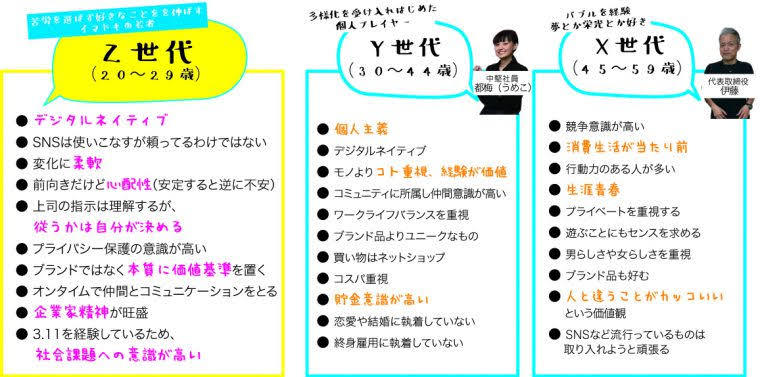 苦労を選ばず好きなことを伸ばす
イマドキの若者
Z世代
(20〜29歳)
● デジタルネイティブ
● SNSは使いこなすが頼ってるわけではない
● 変化に柔軟
● 前向きだけど心配性(安定すると逆に不安)
● 上司の指示は理解するが、
従うかは自分が決める
● プライバシー保護の意識が高い
● ブランドではなく本質に価値基準を置く
● オンタイムで仲間とコミュニケーションをとる
● 企業家精神が旺盛
● 3.11を経験しているため、
社会課題への意識が高い
多様化を受け入れはじめた
個人プレイヤー
Y世代
(30〜44歳)
中堅社員
都梅(うめこ)
● 個人主義
● デジタルネイティブ
● モノよりコト重視、経験が価値
● コミュニティに所属し仲間意識が高い
● ワークライフバランスを重視
● ブランド品よりユニークなもの
● 買い物はネットショップ
● コスパ重視
● 貯金意識が高い
● 恋愛や結婚に執着していない
● 終身雇用に執着していない
バブルを経験
夢とか栄光とか好き
X世代
(45〜59歳)
代表取締役
伊藤
● 競争意識が高い
● 消費生活が当たり前
● 行動力のある人が多い
● 生涯青春
● プライベートを重視する
● 遊ぶことにもセンスを求める
● 男らしさや女らしさを重視
● ブランド品も好む
● 人と違うことがカッコいい
という価値観
● SNSなど流行っているものは
取り入れようと頑張る